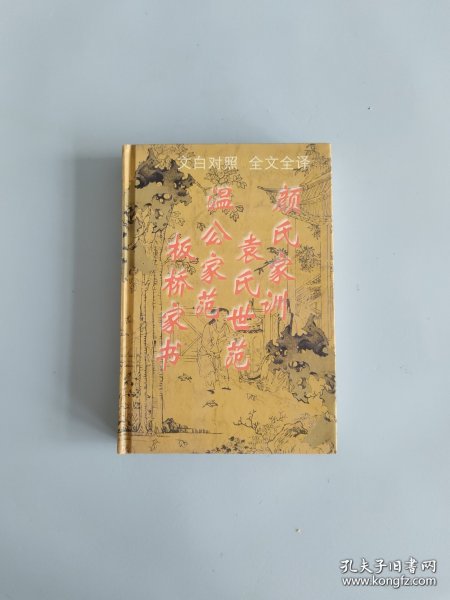 文白对照 全文全译
颜氏家训
袁氏世范
温公家范
板桥家书
孔夫子旧书网
www.kongfz.com